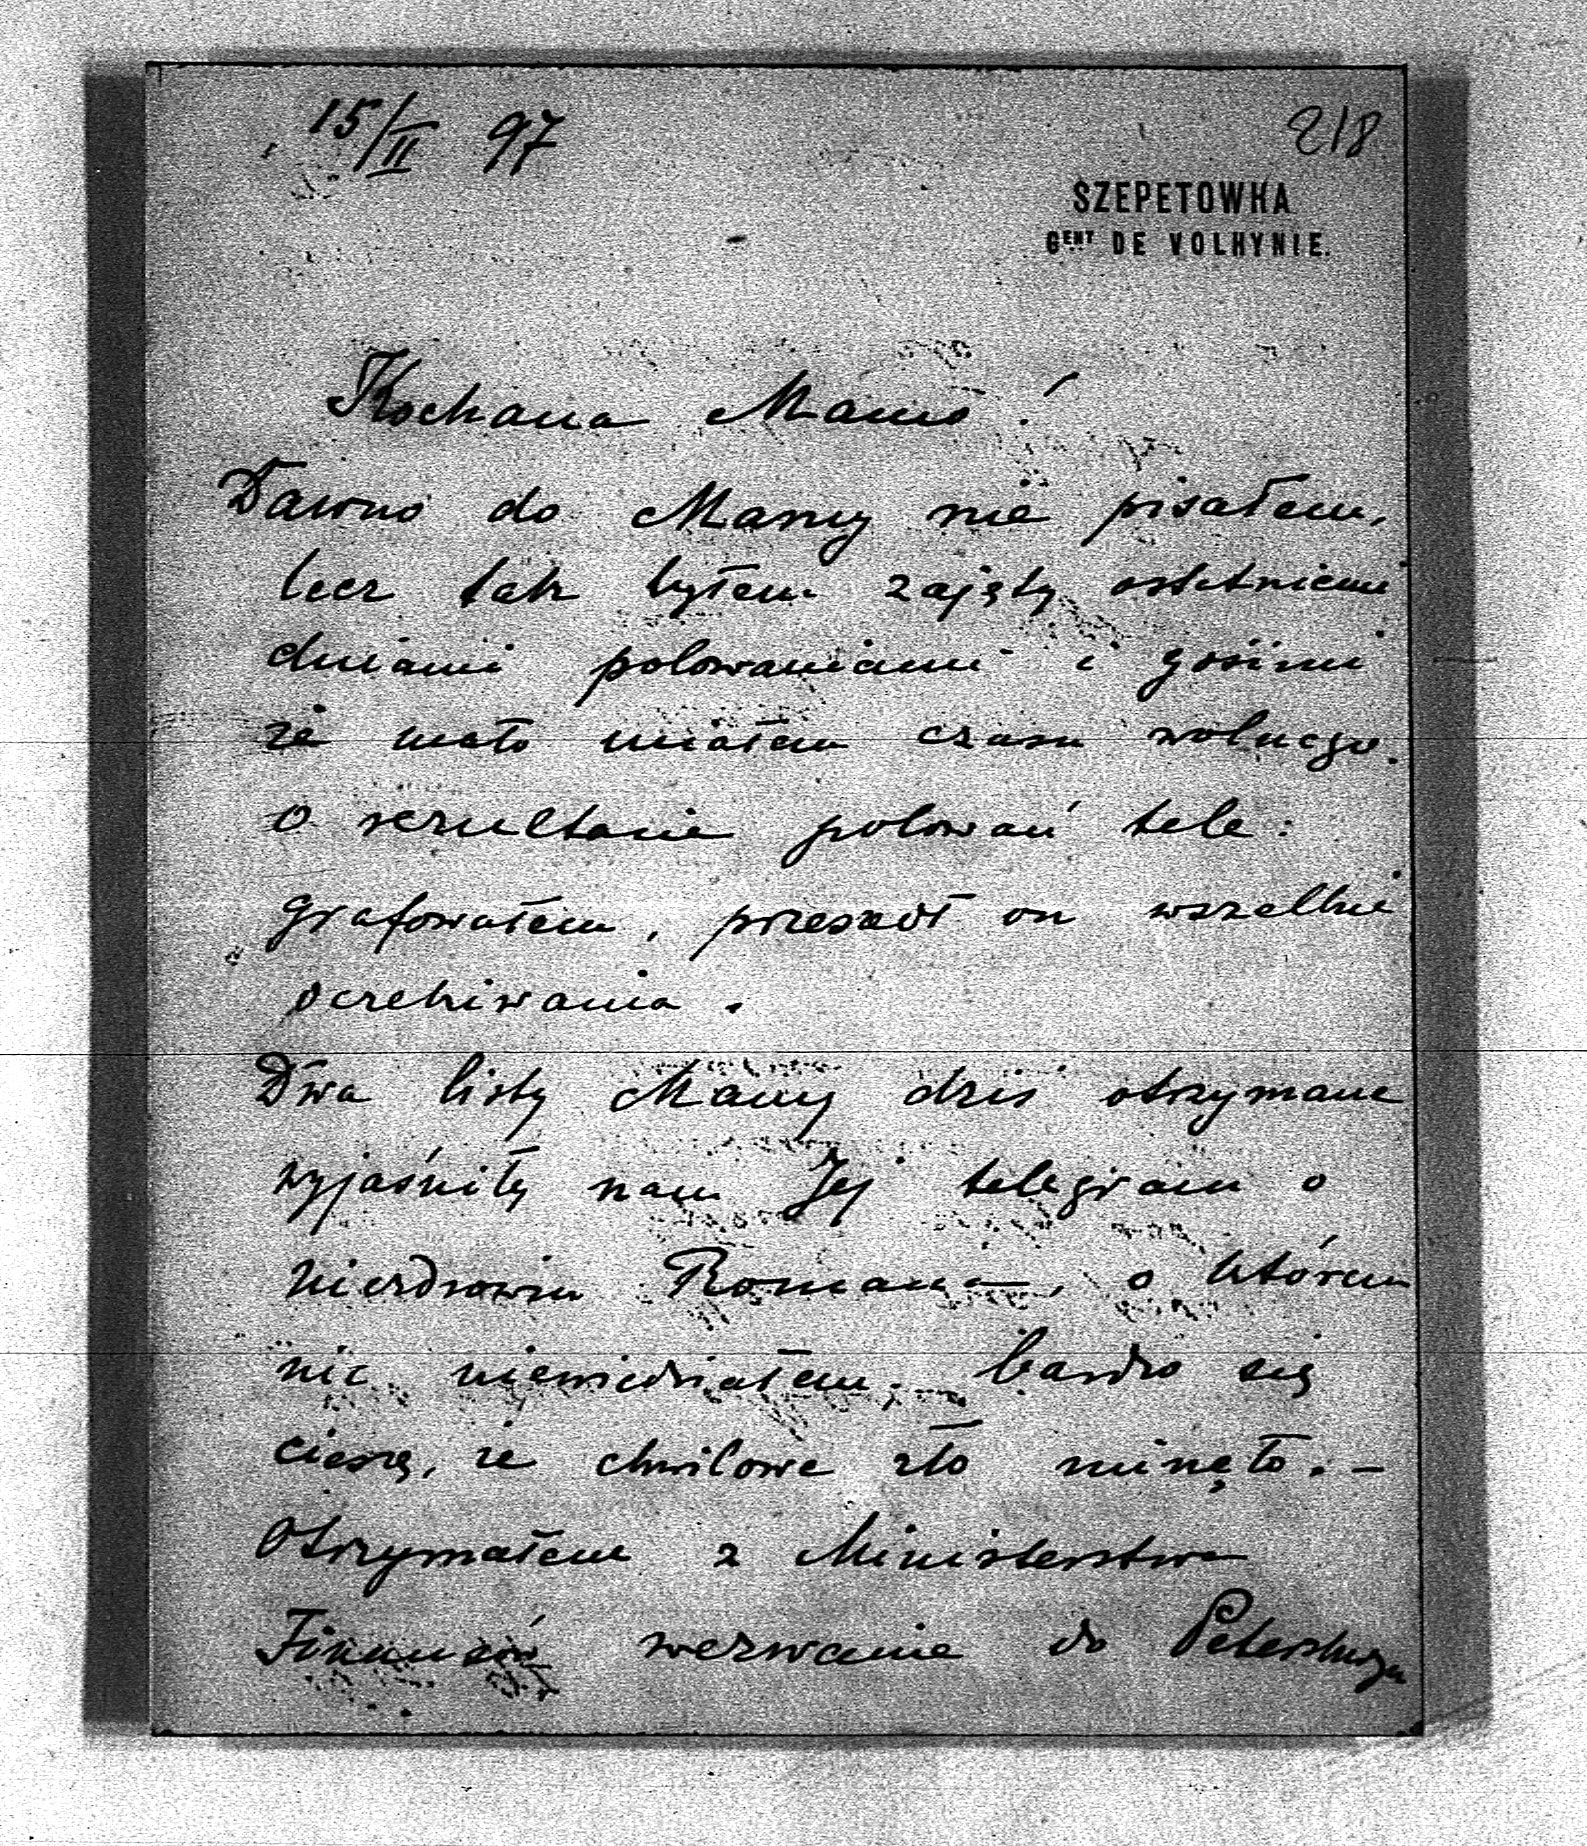 15/II 97
218
SZEPETOWKA
Gent DE VOLHYNIE.
Kochana Mamo!
Dawno do Mamy nie pisałem,
lecz tak byłem zajęty ostatniemi
dniami polowaniami i gośćmi
że mało miałem czasu wolnego.
O rezultacie polowań tele:
grafowałem, przeszedł on wszelkie
oczekiwania.
Dwa listy Mamy dziś otrzymane
wyjaśniły nam Jej telegram o
niezdrowiu Romana, o którem
nic niewiedziałem. bardzo się
cieszę, że chwilowe zło minęło. –
Otrzymałem z Ministerstwa
Finansów wezwanie do Petersburga